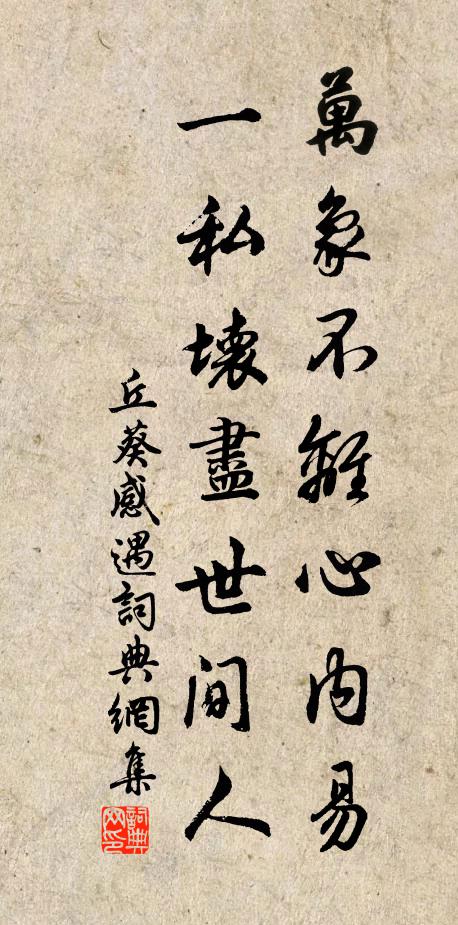 萬象不離心內易
一私壞盡世間人
丘葵感遇詞典網集
詞典網印